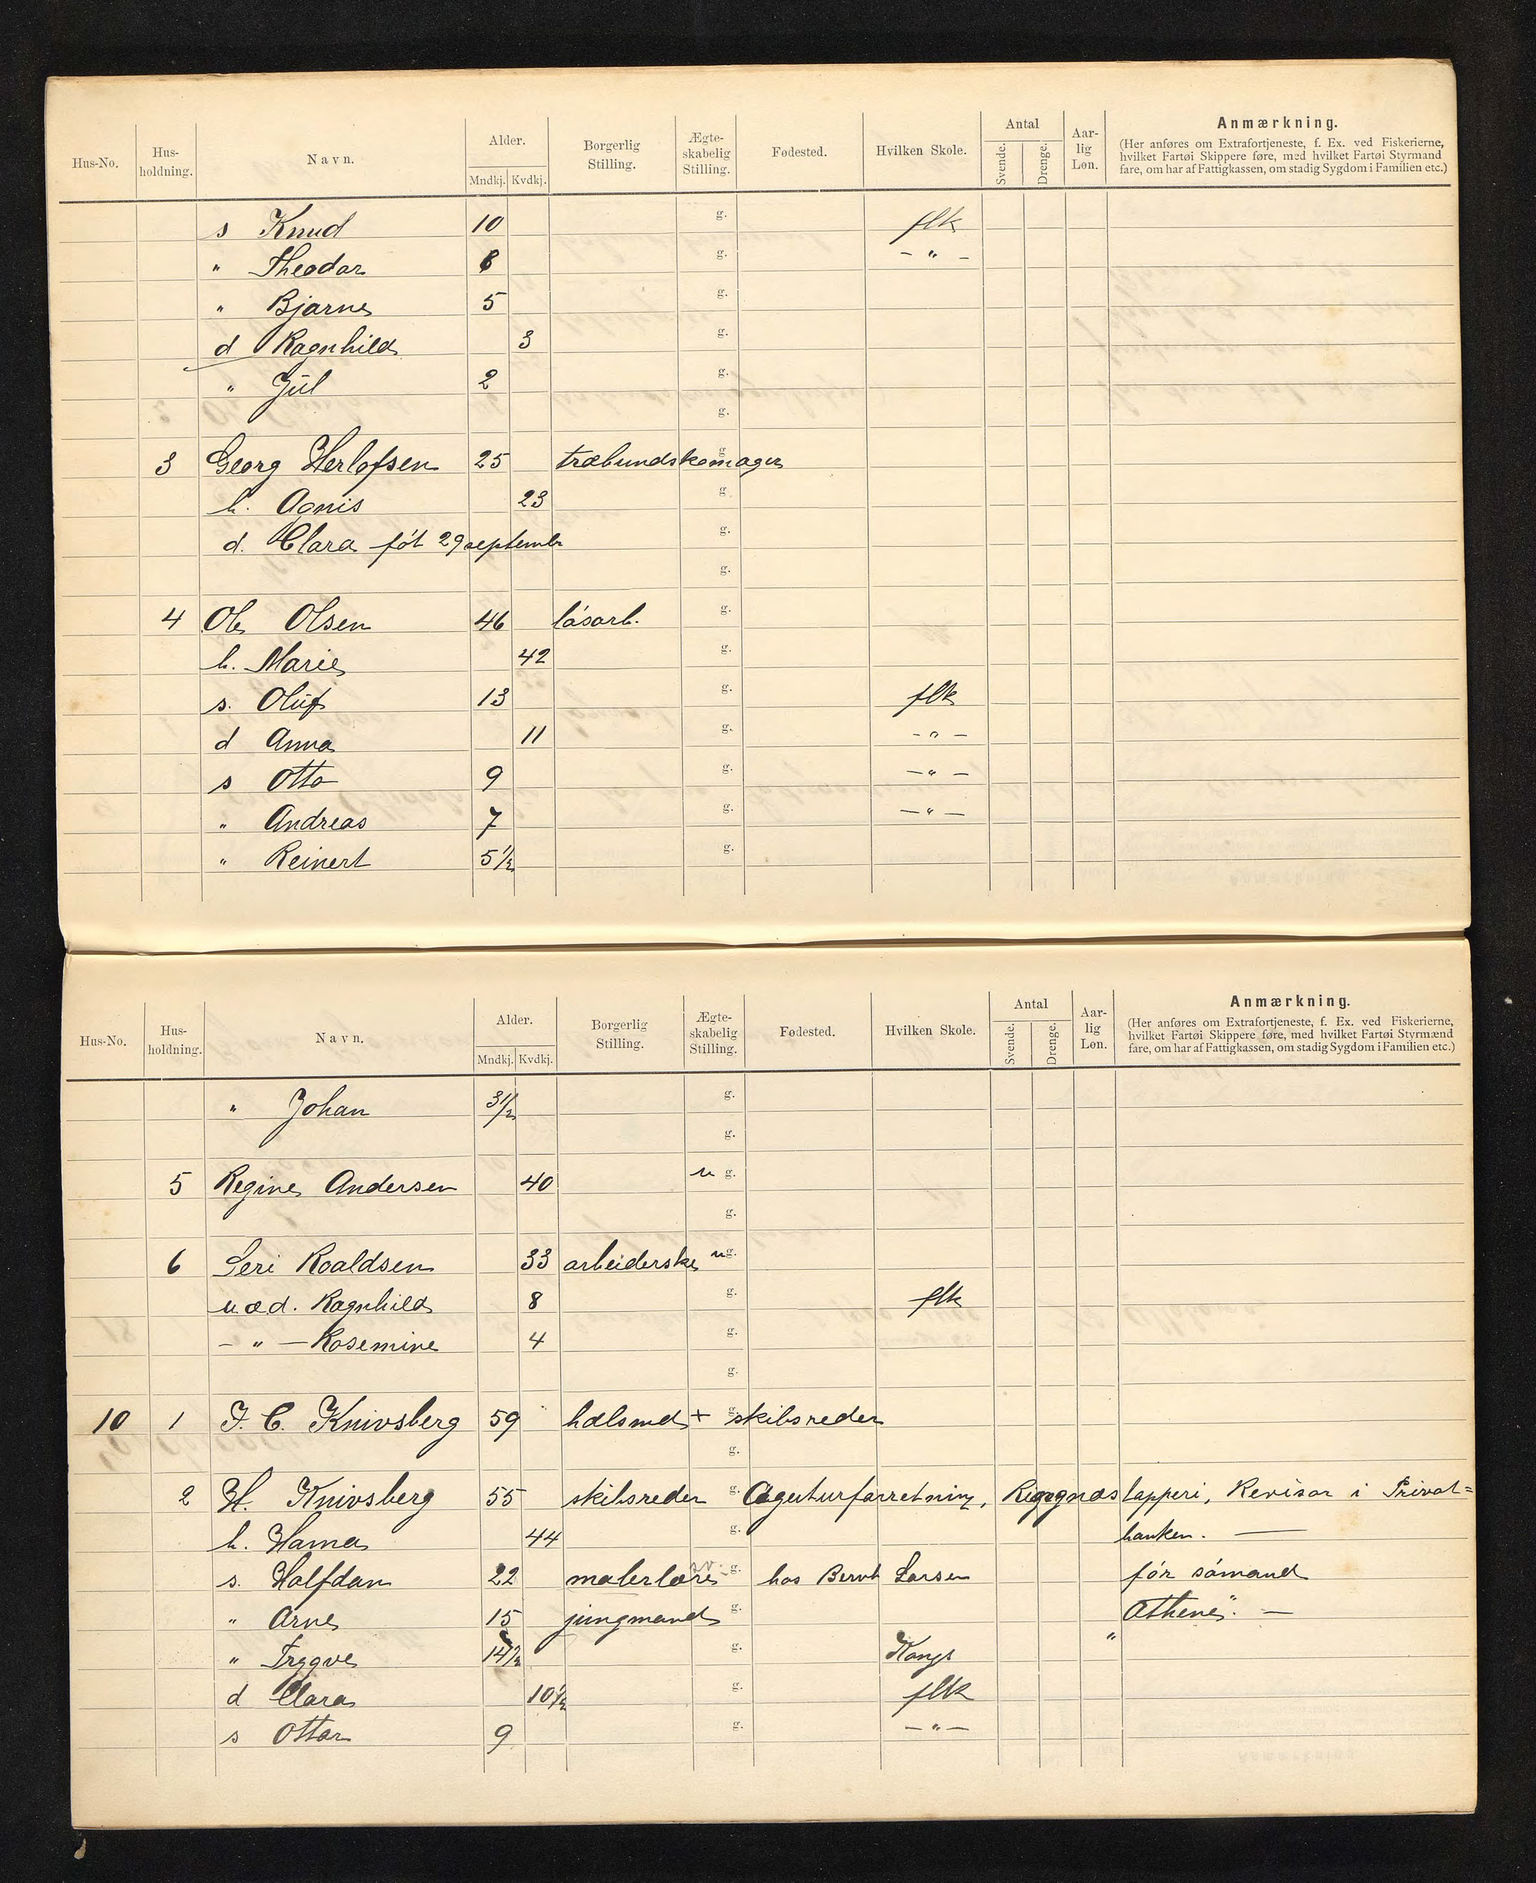 Hus-No. Hus-holdning. Navn. Alder. Mndkj. Kvdkj. Borgerlig Stilling. Ægte-skabelig Stilling. Fødested. Hvilken Skole. Antal Svende. Drenge. Aar-lig Løn. Anmærkning.
(Her anføres om Extrafortjeneste, f. Ex. ved Fiskerierne,
hvilket Fartøi Skippere føre, med hvilket Fartøi Styrmænd
fare, om har af Fattigkassen, om stadig Sygdom i Familien etc.)
s Knud 10 g. flk
" Theodor 8 g. — " —
" Bjarne 5 g.
d Ragnhild 3 g.
" Jul 2 g.
g.
3 Georg Herlofsen 25 træbundskomager g.
h. Agnis 23 g.
d. Clara fót 29 septembr g.
g.
4 Ole Olsen 46 lósarb. g.
h. Marie 42 g.
s. Oluf 13 g. flk
d Anna 11 g. — " —
s Otto 9 g. — " —
" Andreas 7 g. — " —
" Reinert 5 1/2 g.
Hus-No. Hus-holdning. Navn. Alder. Mndkj. Kvdkj. Borgerlig Stilling. Ægte-skabelig Stilling. Fødested. Hvilken Skole. Antal Svende. Drenge. Aar-lig Løn. Anmærkning.
(Her anføres om Extrafortjeneste, f. Ex. ved Fiskerierne,
hvilket Fartøi Skippere føre, med hvilket Fartøi Styrmænd
fare, om har af Fattigkassen, om stadig Sygdom i Familien etc.)
" Johan 3 1/2 g.
g.
5 Regine Andersen 40 u g.
g.
6 Seri Roaldsen 33 arbeiderske u g.
u.æ.d. Ragnhild 8 g. flk
— " — Rosemine 4 g.
g.
10 1 J. C. Knivsberg 59 hdlsmd + skibsreder g.
g.
2 H. Knivsberg 55 skibsreder g. Agenturforretning, tapperi, Revisor i Privat=
h. Hanna 44 g. banken. —
s. Halfdan 22 malerlære sv. g. hos Bernt Larsen fór sómand
" Arne 15 jungmand g. " Athene". —
" Trygve 14 1/2 g. Kongs
d Clara 10 1/2 g. flk
s Ottar 9 g. — " —